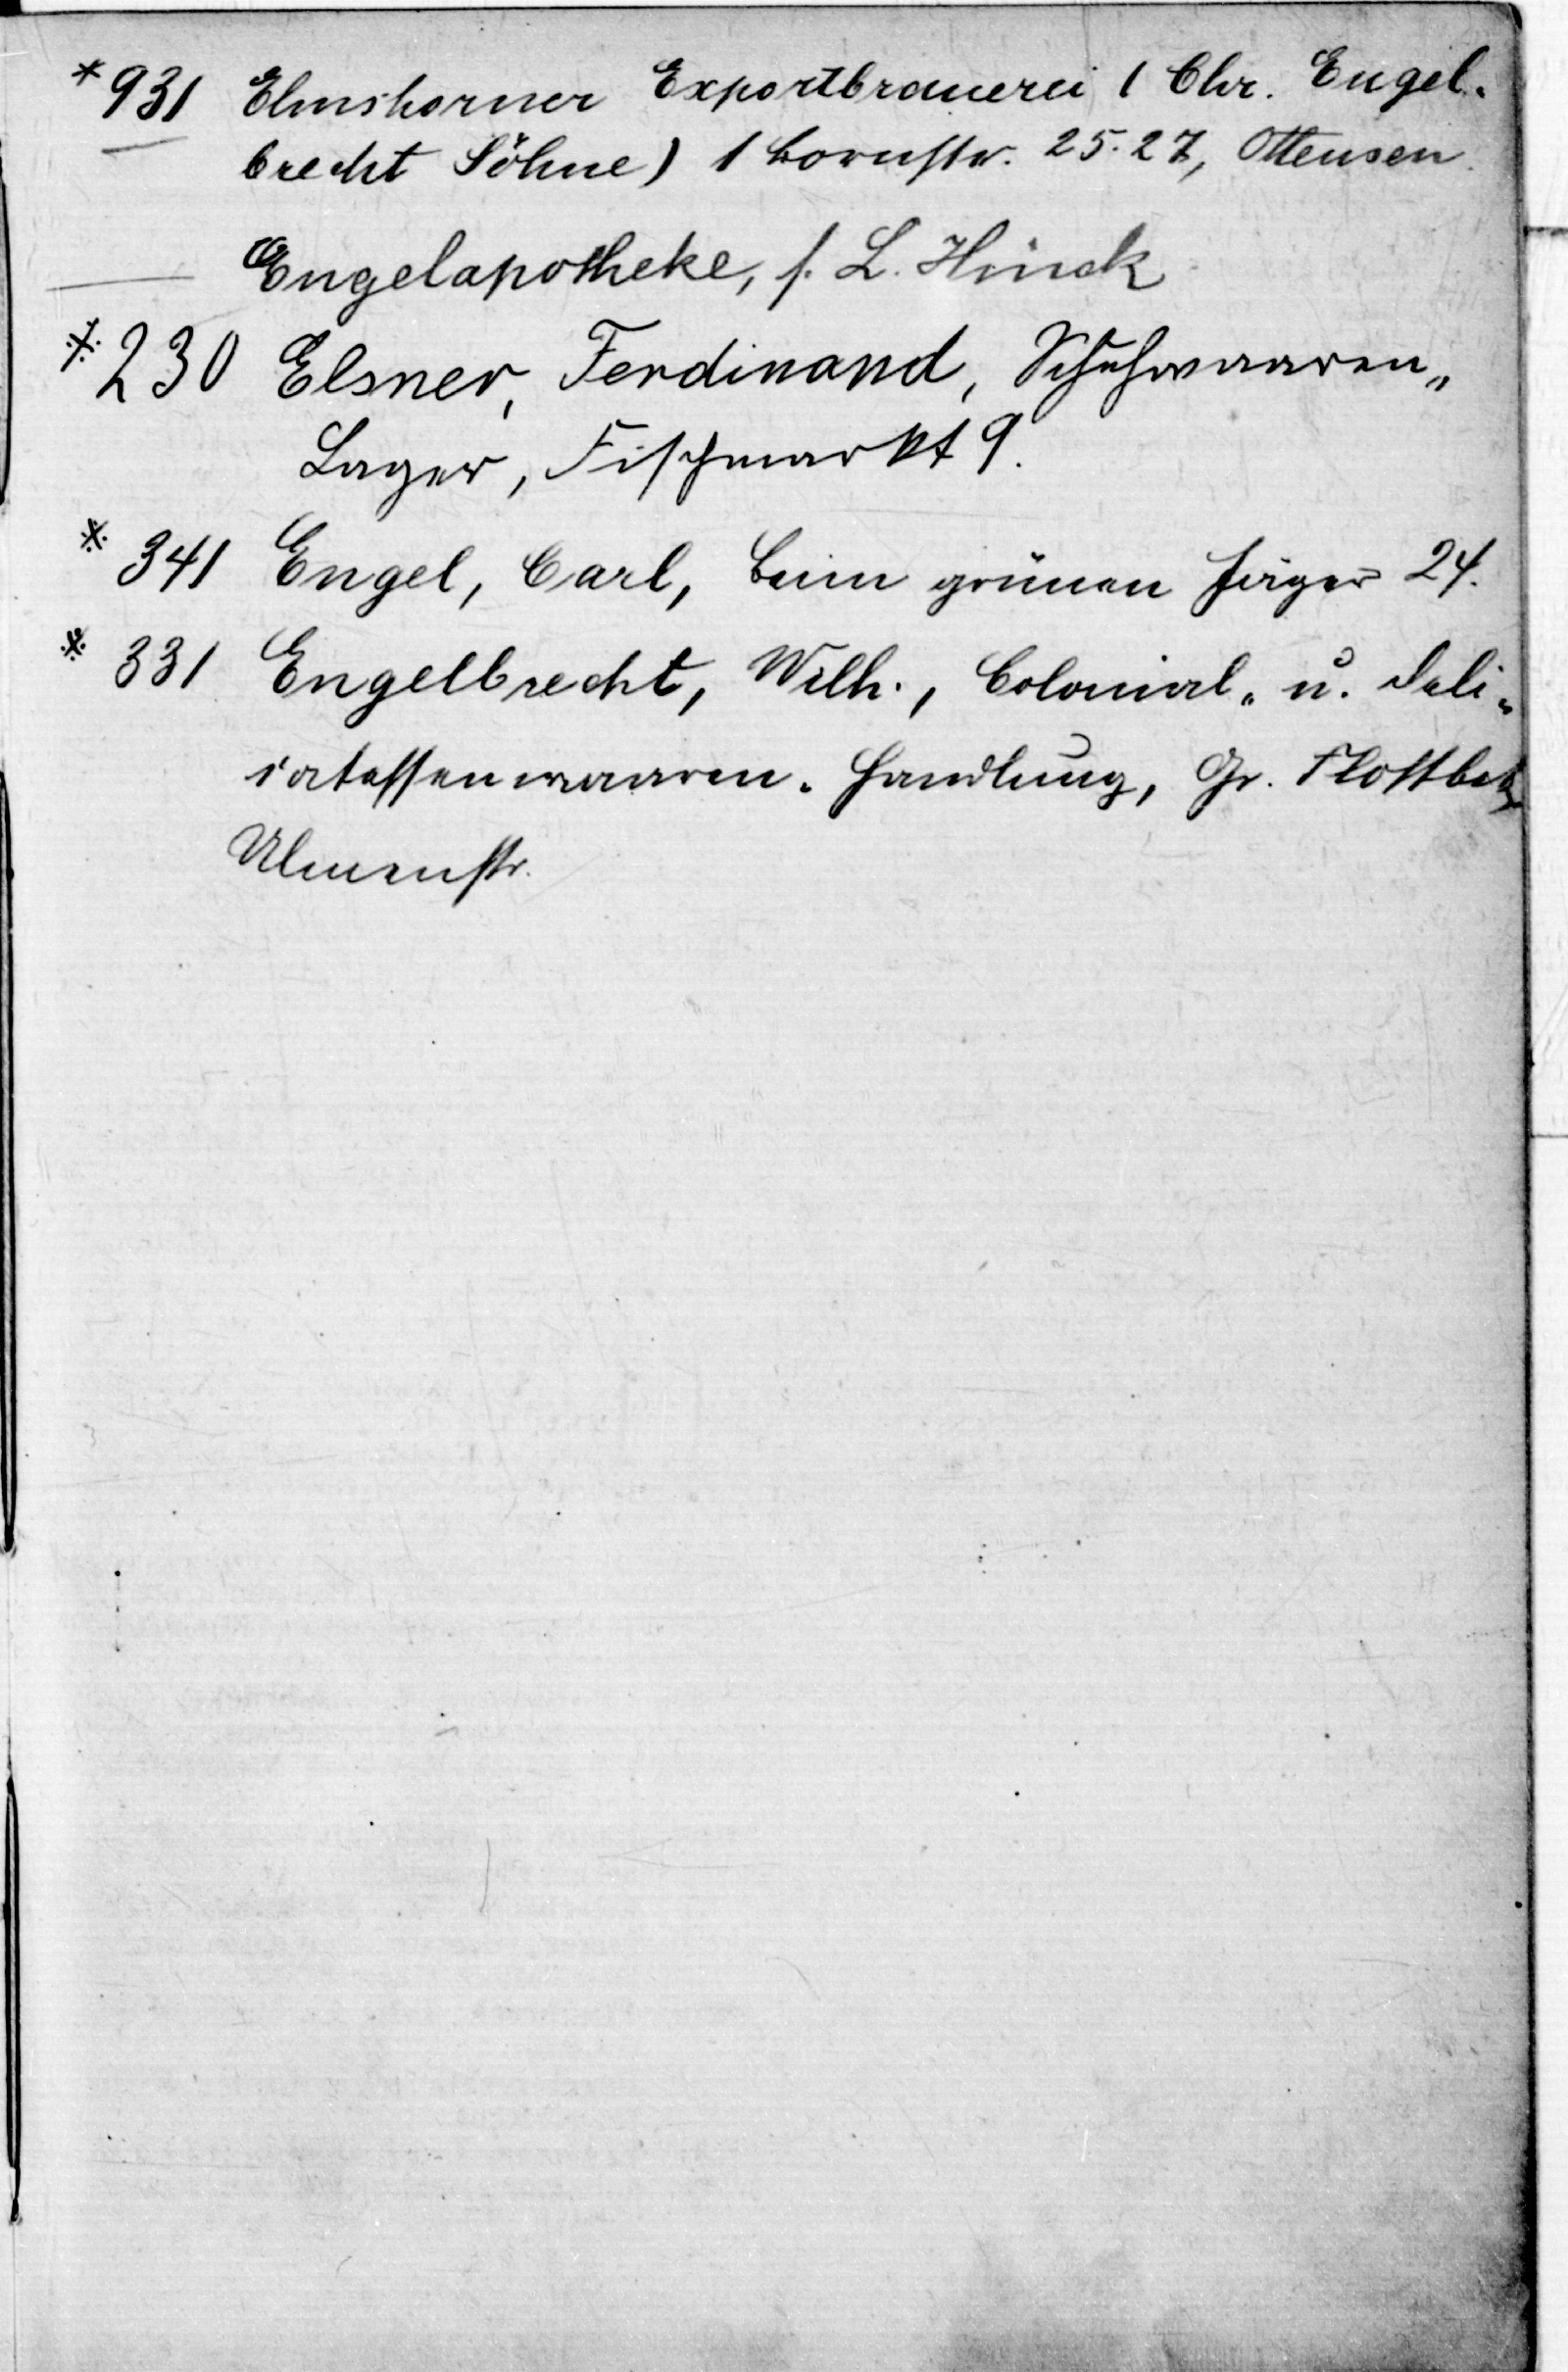 * 931 Elmshorner Exportbrauerei (Chr. Engel-
brecht Söhne) 1 Bornstr. 25.27, Ottensen.
Engelapotheke, s. L. Hinck
* 230 Elsner, Ferdinand, Schuhwaaren-
Lager, Fischmarkt 9.
* 341 Engel, Carl, beim grünen Jäger 24.
* 331 Engelbrecht, Wilh., Colonial- u. Deli-
catessenwaaren-Handlung, Gr. Flottbek
Ulmenstr.